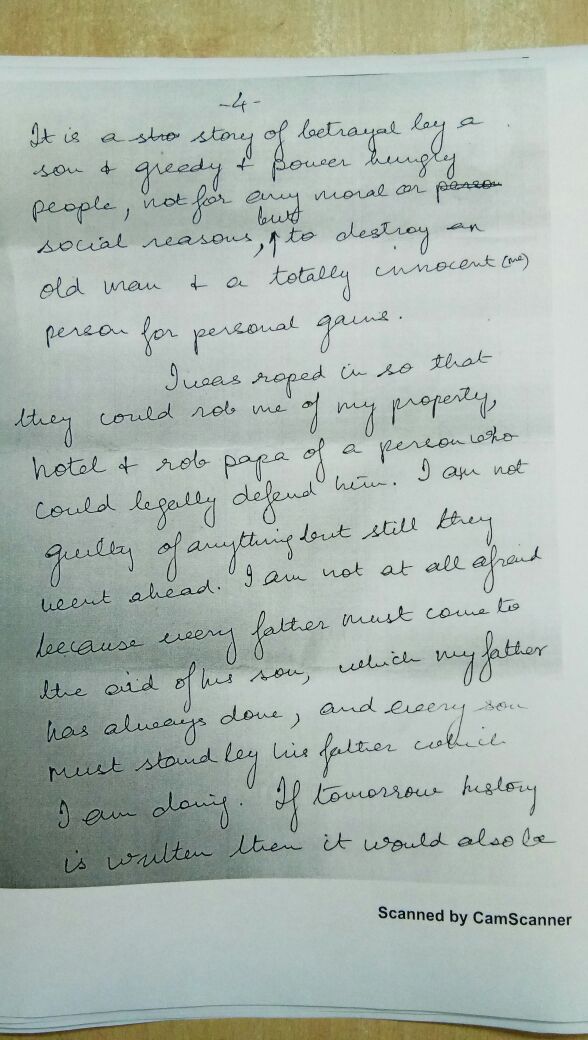 -4-
It is a stro story of betrayal by a
son & greedy & power hungry
people, not for any moral or person
social reasons, but to destroy an
old man & a totally innocent (me)
person for personal gains.
I was roped in so that
they could rob me of my property,
hotel & rob papa of a person who
could legally defend him. I am not
guilty of anything but still they
went ahead. I am not at all afraid
because every father must come to
the aid of his son, which my father
has always done, and every son
must stand by his father which
I am doing. If tomorrow history
is written then it would also be
Scanned by CamScanner